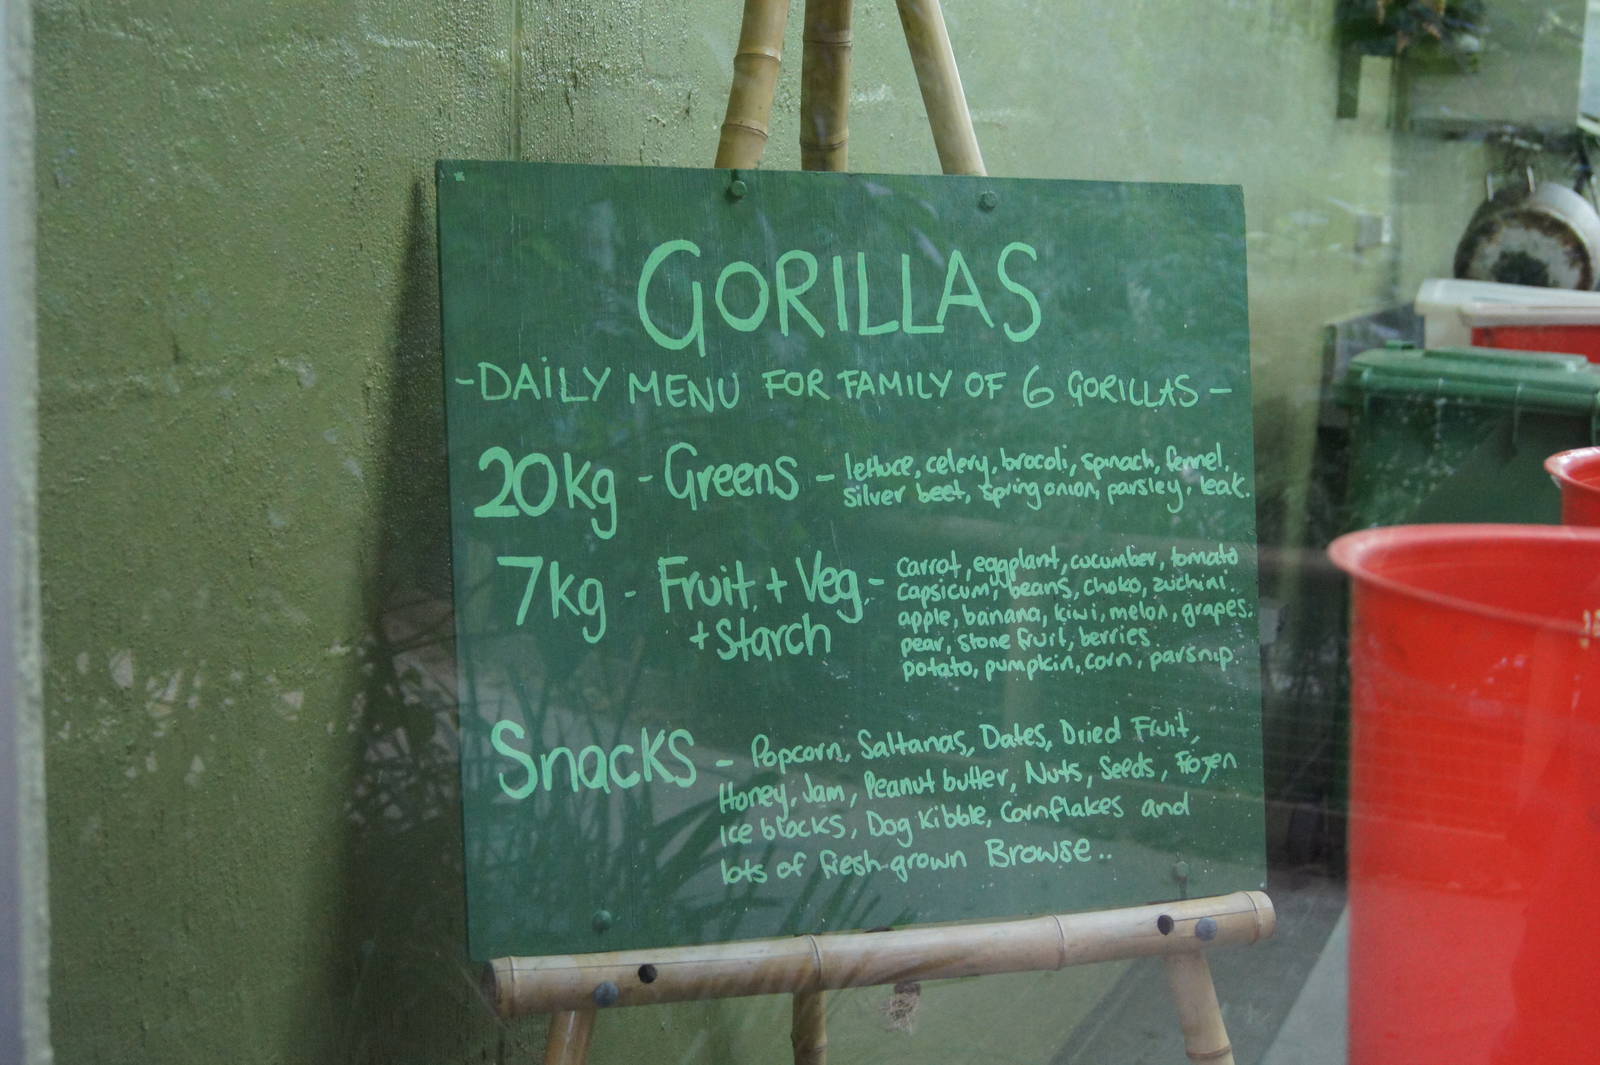 GORILLAS
- DAILY MENU FOR FAMILY OF 6 GORILLAS -
20kg - Greens - lettuce, celery, brocoli, spinach, fennel,
silver beet, spring onion, parsley, leak.
7kg - Fruit + Veg - carrot, eggplant, cucumber, tomato
+ Starch
capsicum, beans, choko, zuchini.
apple, banana, kiwi, melon, grapes.
pear, stone fruit, berries
potato, pumpkin, corn, parsnip.
Snacks - Popcorn, Saltanas, Dates, Dried Fruit,
Honey, Jam, Peanut butter, Nuts, Seeds, Frozen
ice blocks, Dog Kibble, Cornflakes and
lots of fresh-grown Browse..